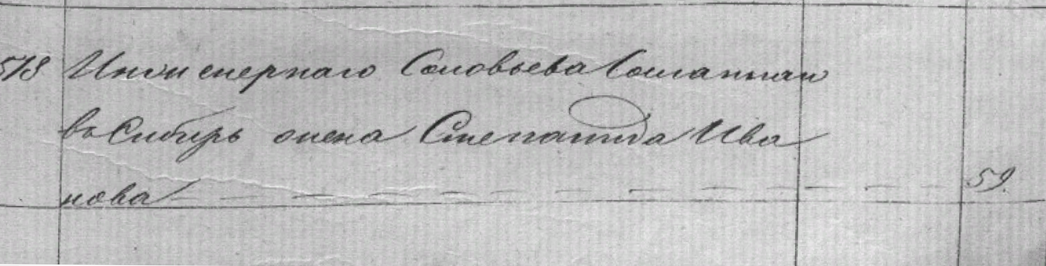 518 Инженернаго Соловьева Сосланнаго
въ Сибирь жена Степанида Ива
нова 59.